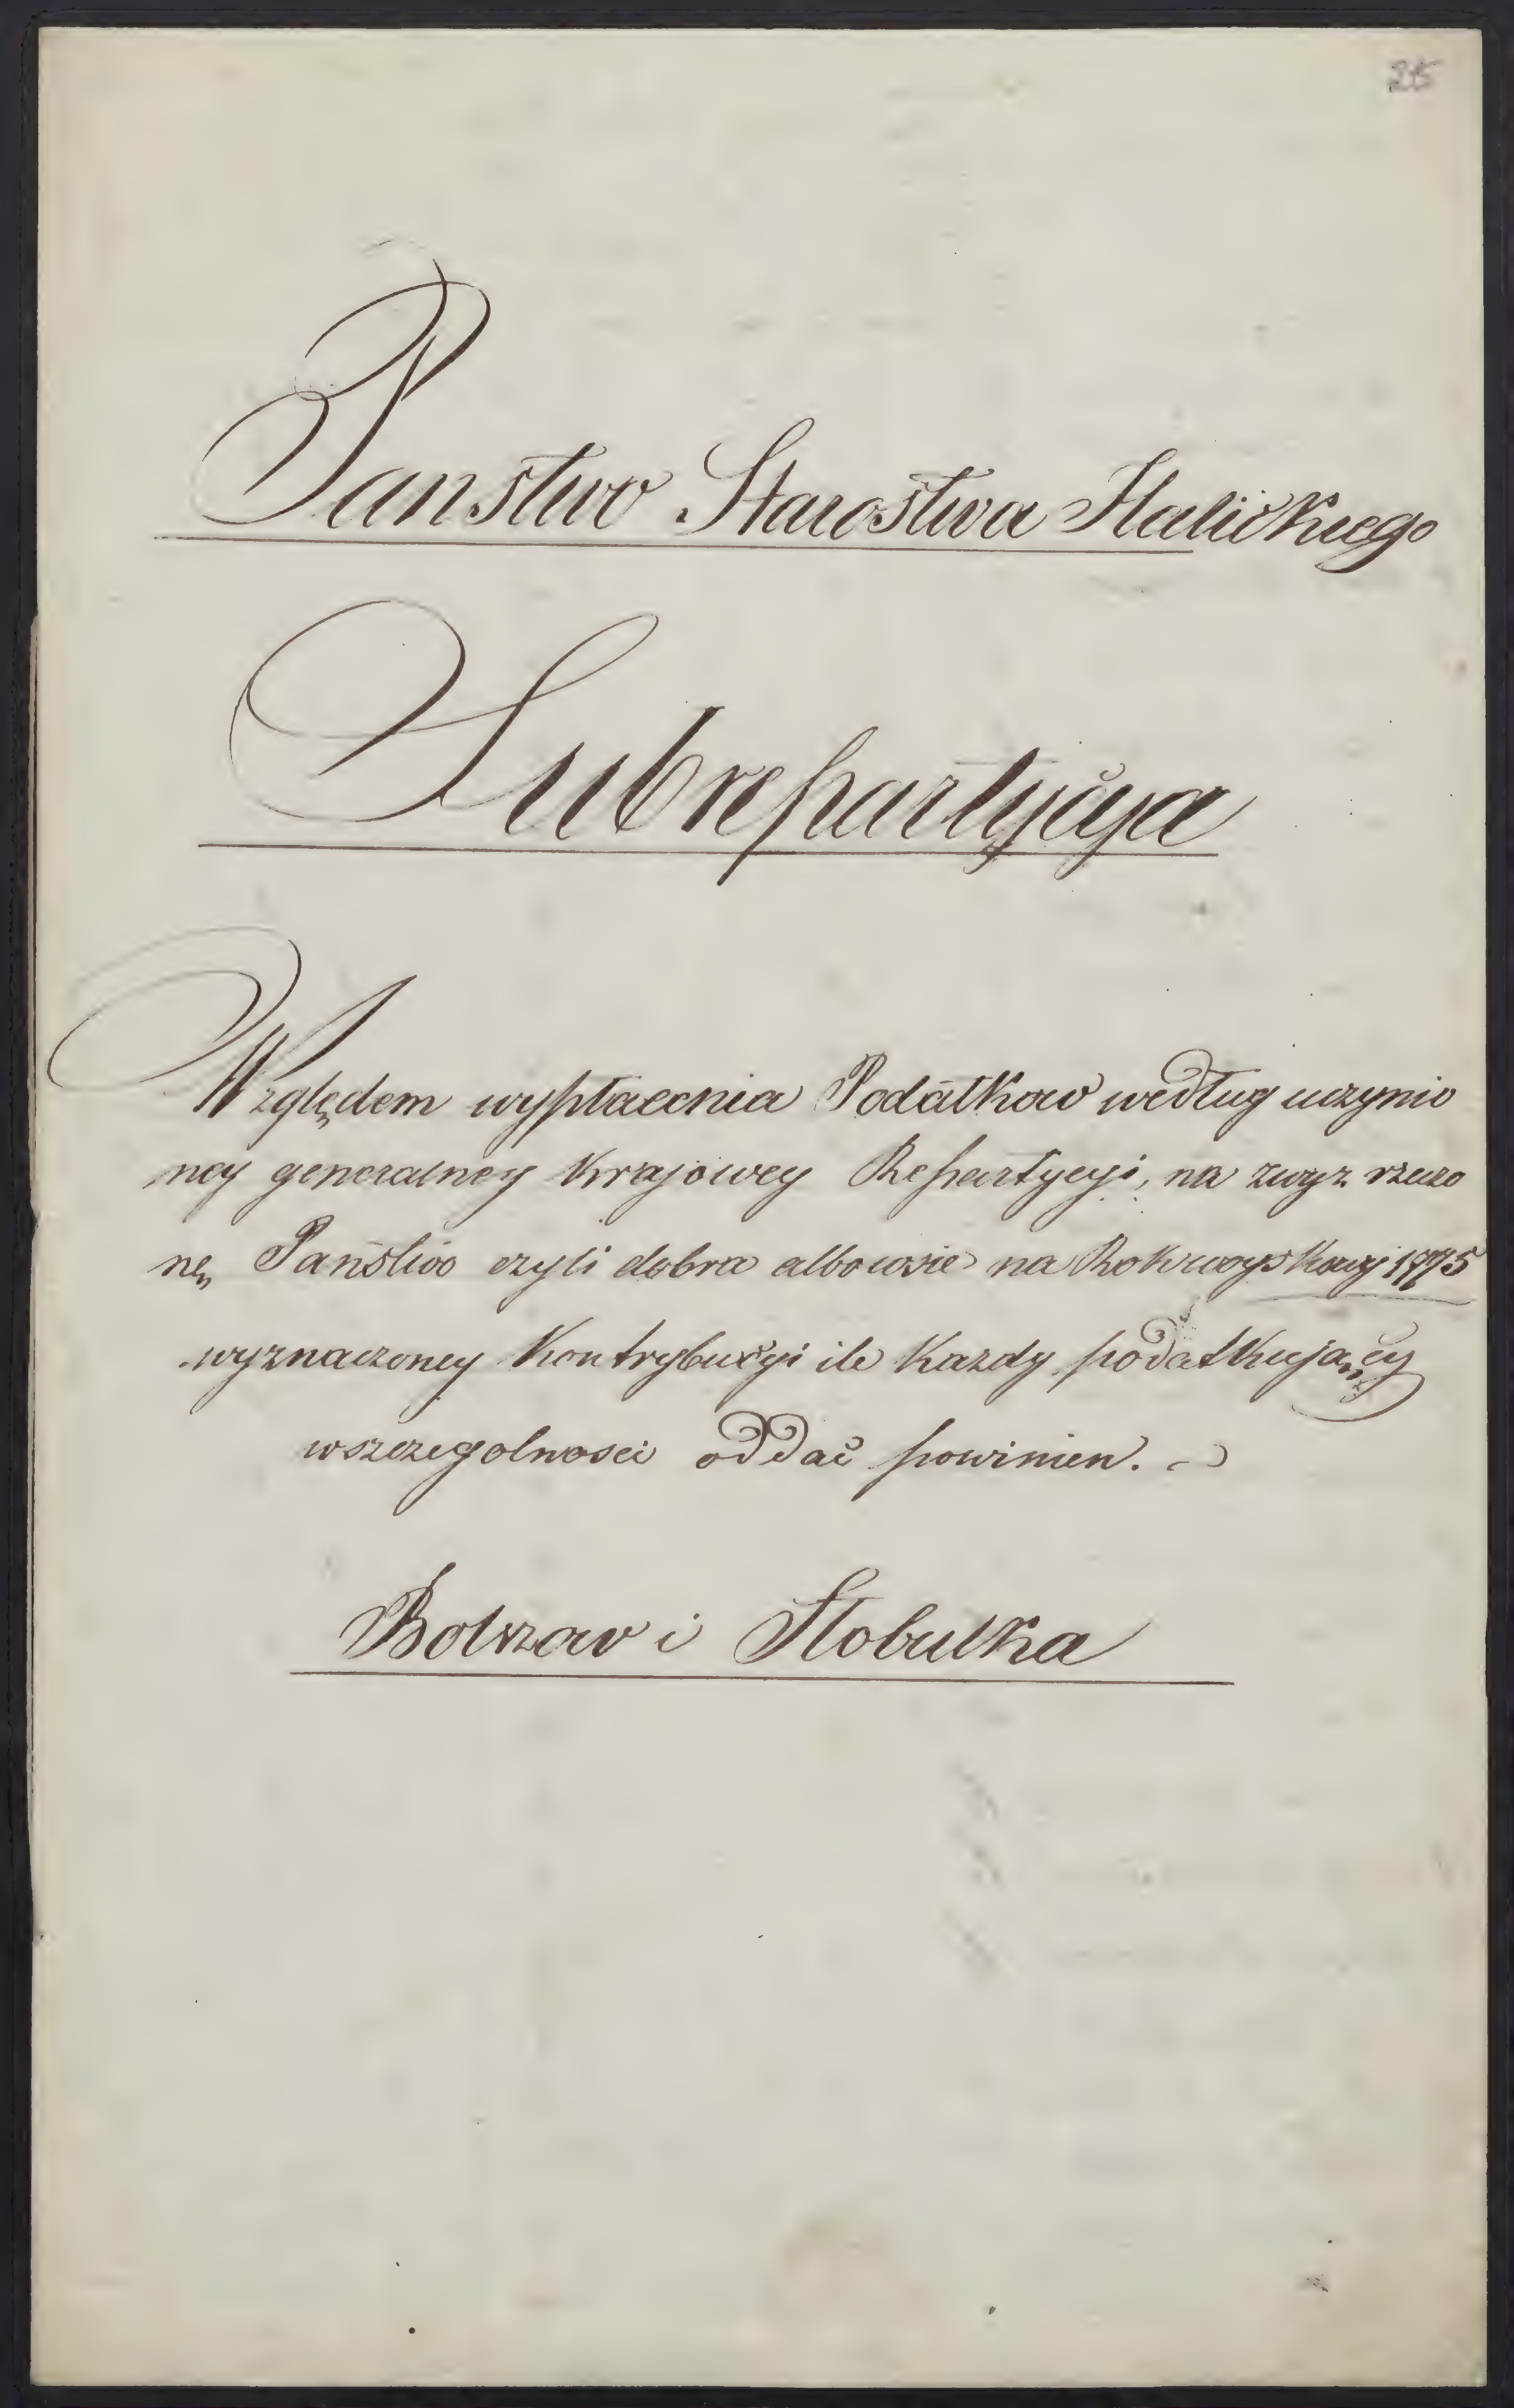 25
Panstwo Starostwa Halickiego
Subrepartycya
Względem wypłacenia Podatkow według uczynio
ney generalney Krajowey Repartycyi, na zwyz rzeczo
ne Panstwo czyli dobra albo wsie na Rok woyskowy 1775
wyznaczoney Kontrybucyi ile Kazdy podatkujący
wszczegolnosci oddać powinien.
Bolszow i Slobulka